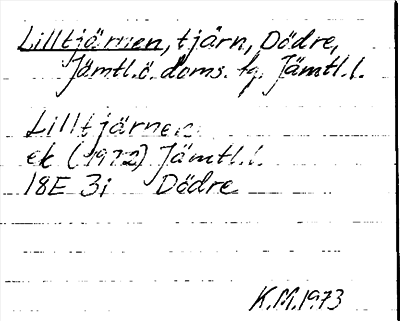 Lilltjärnen, tjärn, Dödre,
Jämtl.ö. doms. tg. Jämtl.l.
Lilltjärnen
ek (1972) Jämtl.l.
18E 3i Dödre
K.M.1973